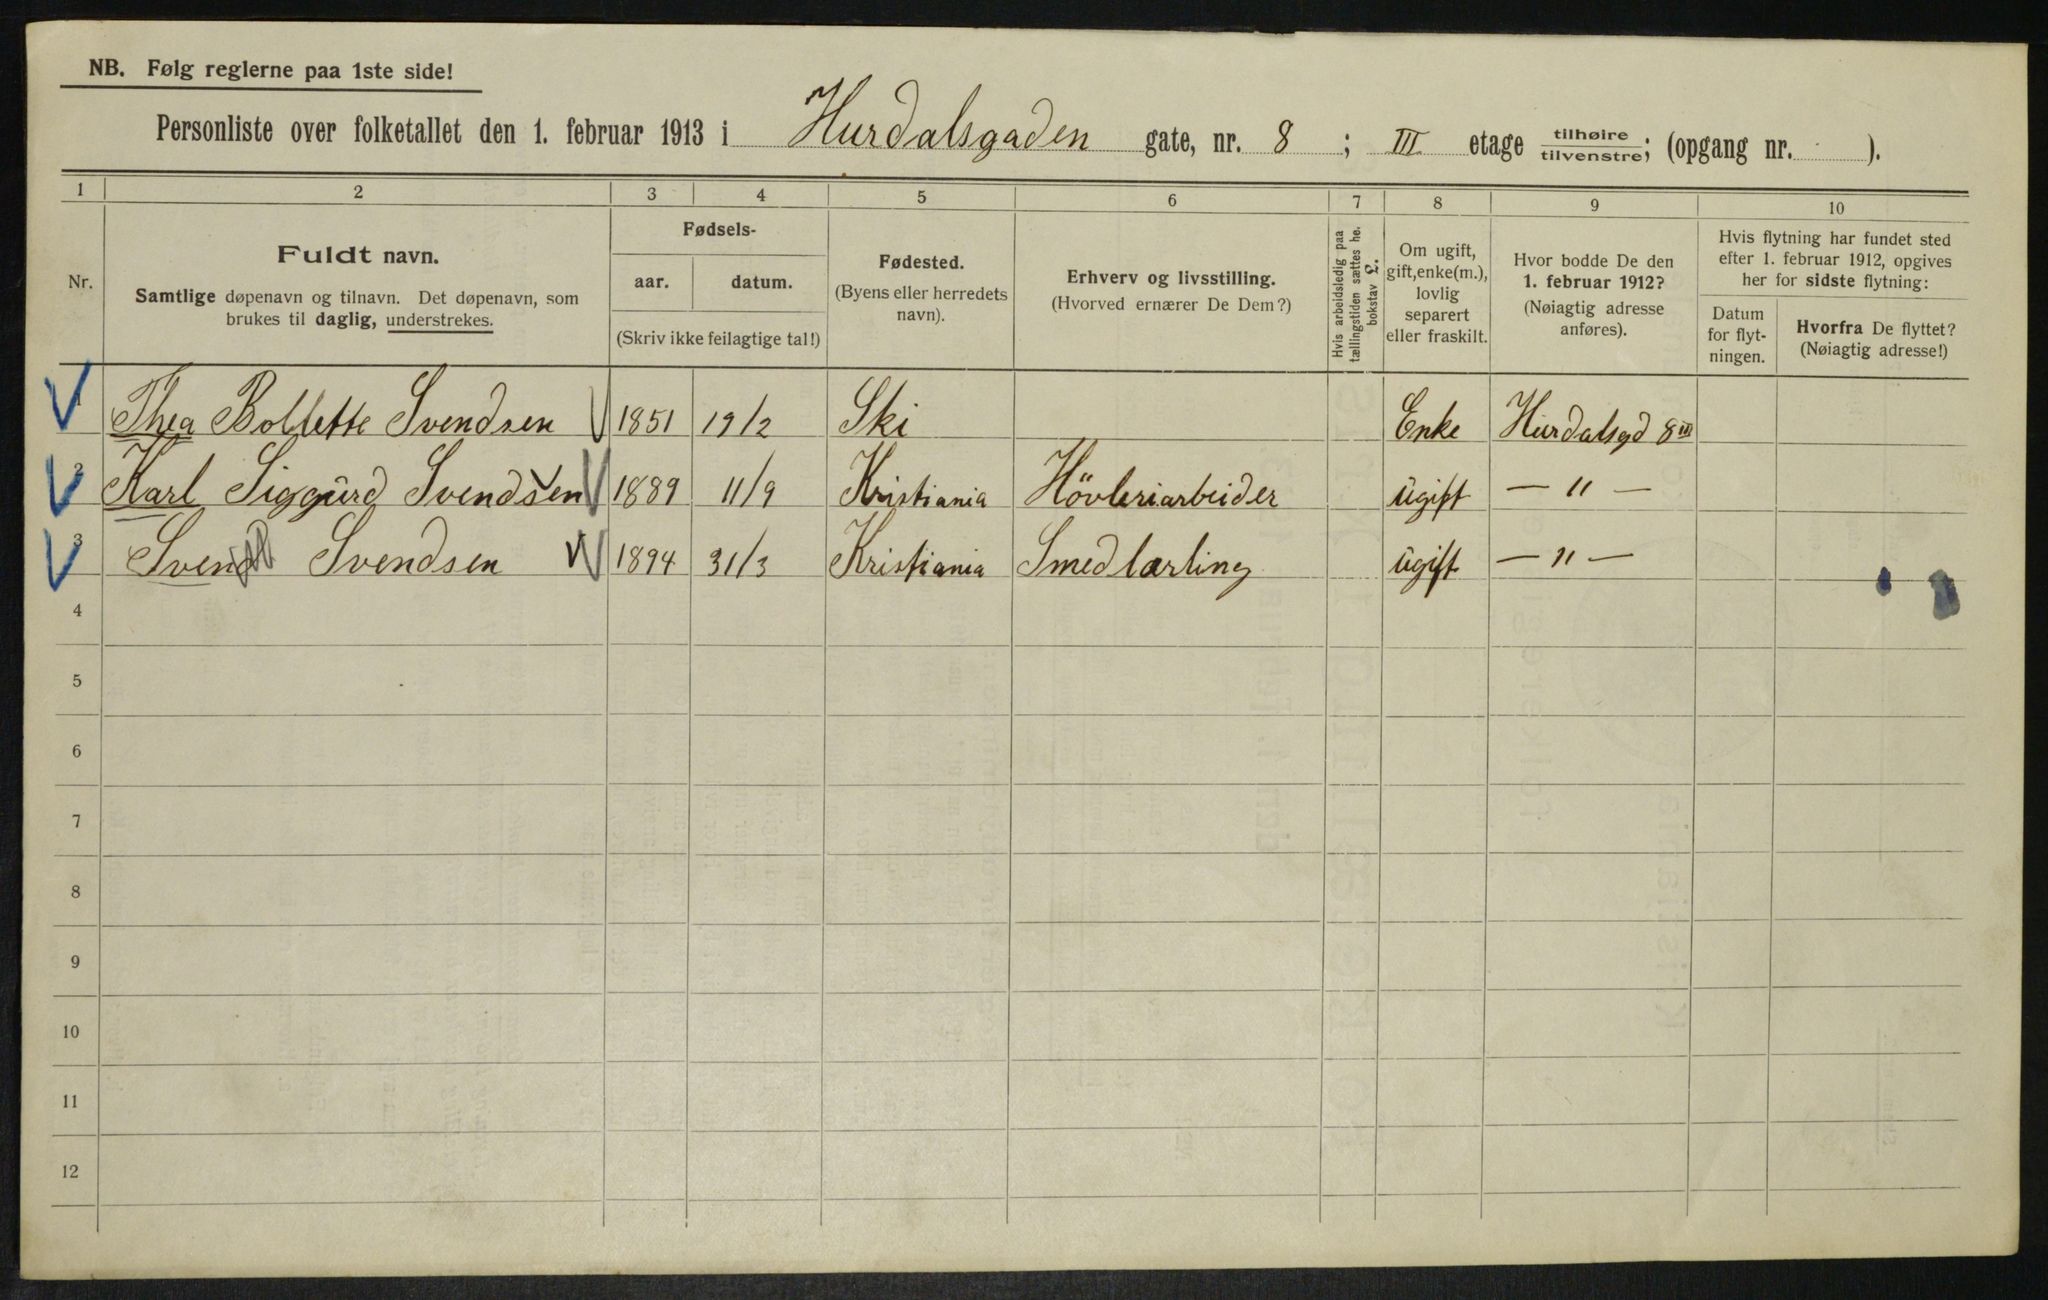 NB. Følg reglerne paa 1ste side!
Personliste over folketallet den 1. februar 1913 i Hurdalsgaden gate, nr. 8 ; III etage tilhøire tilvenstre; (opgang nr. ).
1 2 3 4 5 6 7 8 9 10
Nr.
Fuldt navn.
Samtlige døpenavn og tilnavn. Det døpenavn, som
brukes til daglig, understrekes.
Fødsels-
aar. datum.
(Skriv ikke feilagtige tal!)
Fødested.
(Byens eller herredets
navn).
Erhverv og livsstilling.
(Hvorved ernærer De Dem?)
Hvis arbeidsledig paa
tællingstiden sættes he.
bokstav £.
Om ugift,
gift, enke(m.),
lovlig
separert
eller fraskilt.
Hvor bodde De den
1. februar 1912?
(Nøiagtig adresse
anføres).
Hvis flytning har fundet sted
efter 1. februar 1912, opgives
her for sidste flytning:
Datum
for flyt-
ningen.
Hvorfra De flyttet?
(Nøiagtig adresse!)
1 Thea Bollette Svendsen 1851 19/2 Ski Enke Hurdalsgd 8 III
2 Karl Siggurd Svendsen 1889 11/9 Kristiania Hövleriarbeider ugift — " —
3 Svend Svendsen 1894 31/3 Kristiania Smedlærling ugift — " —
4
5
6
7
8
9
10
11
12